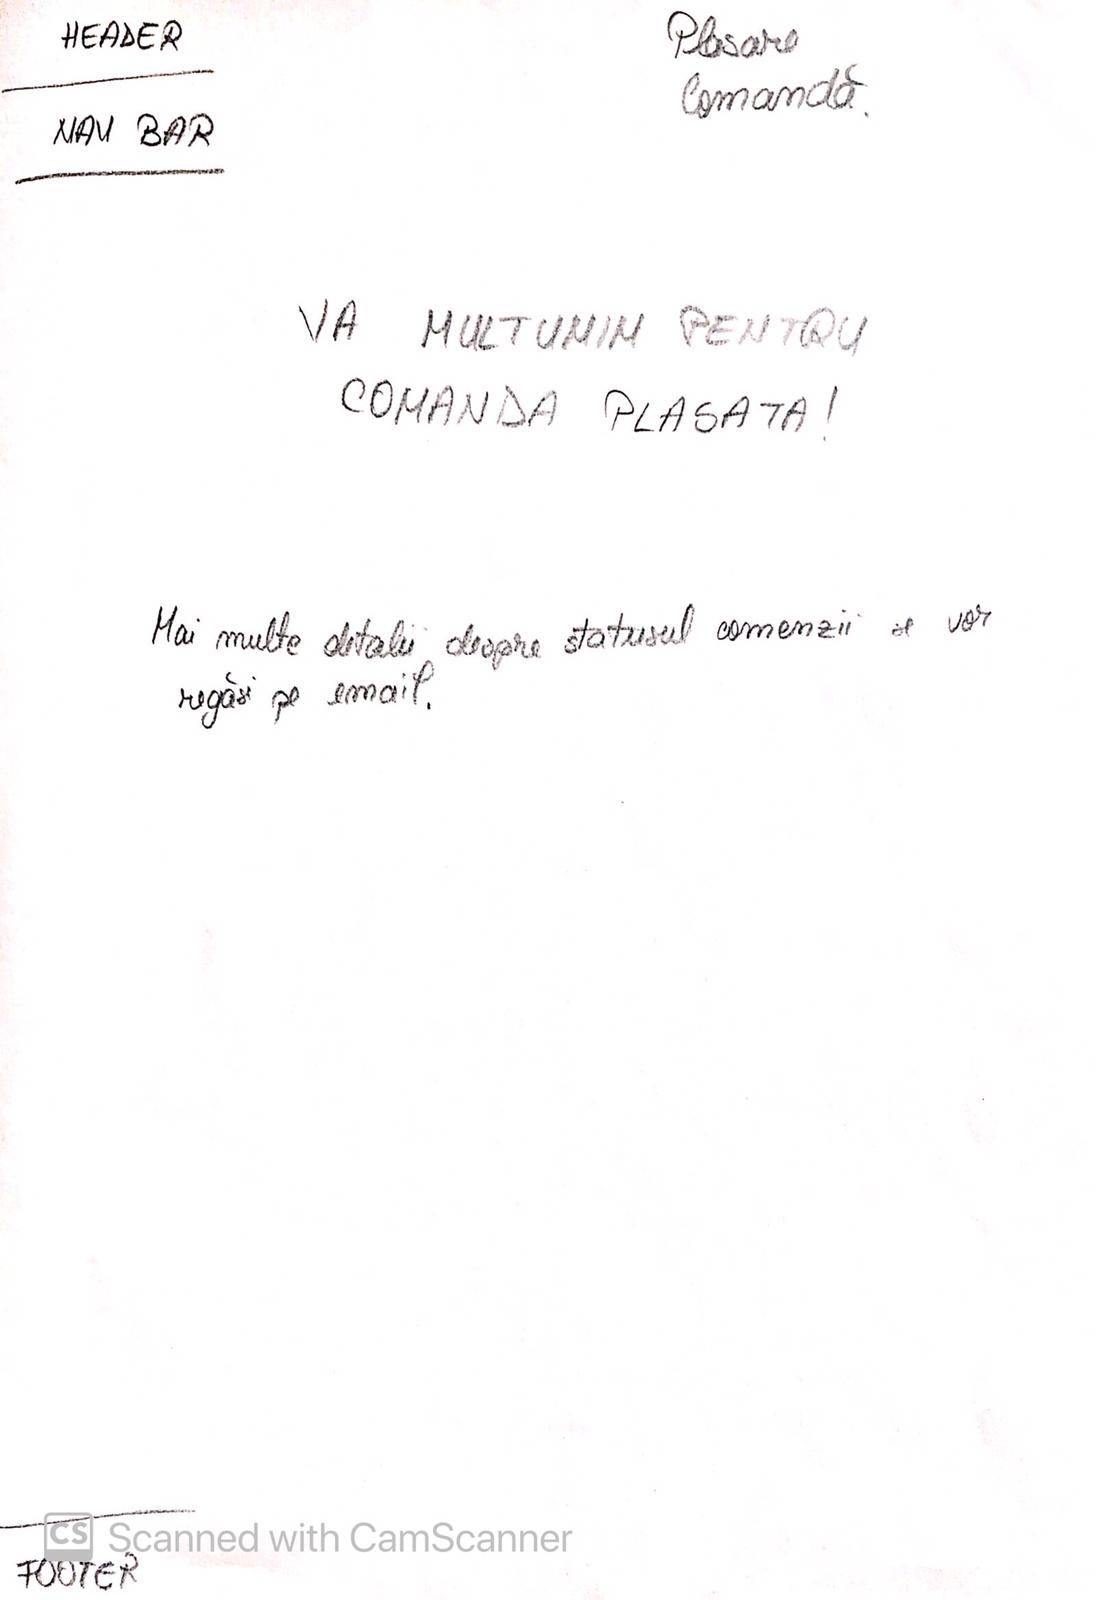 HEADER
Plasare
Comandă.
NAV BAR
VA MULTUMIM PENTRU
COMANDA PLASATA!
Mai multe detalii despre statusul comenzii se vor
regăsi pe email.
CS Scanned with CamScanner
FOOTER